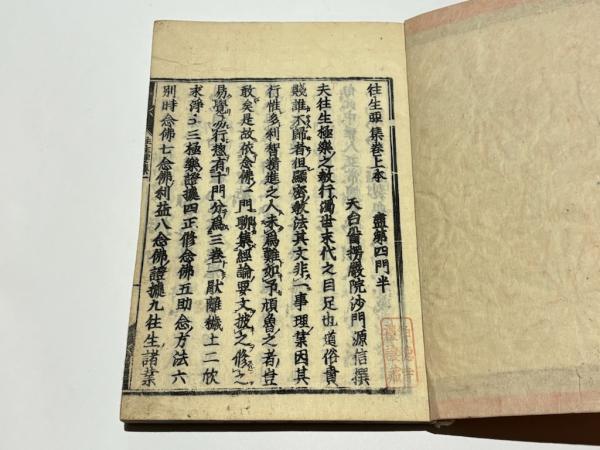 往生要集卷上本　盡第四門半
天台首楞嚴院沙門源信撰
夫往生極樂之敎行濁世末代之目足也道俗貴
賤誰不歸者但顯密敎法其文非一事理業因其
行惟多利智精進之人未爲難如予頑魯之者豈
敢矣是故依念佛一門聊集經論要文披之修之
易覺易行惣有十門分爲三卷一厭離穢土二欣
求淨土三極樂證據四正修念佛五助念方法六
別時念佛七念佛利益八念佛證據九往生諸業